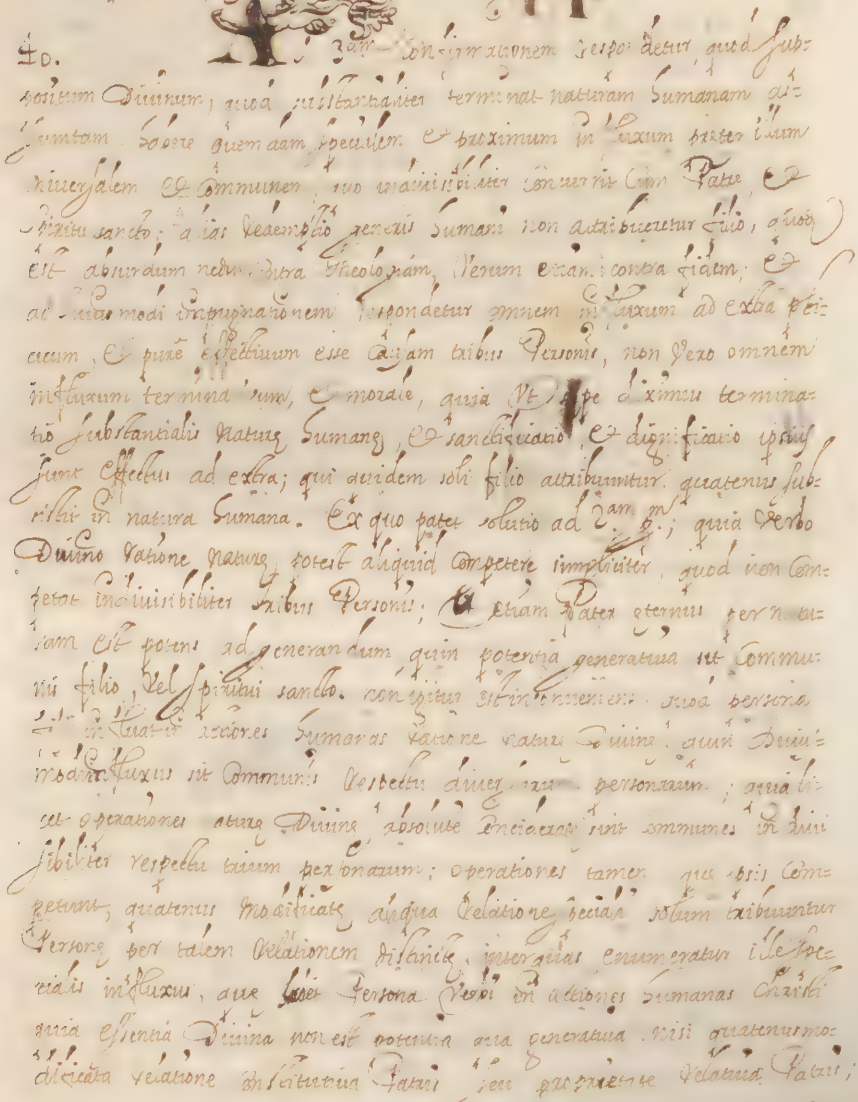 40. 3.am confirmationem respondetur quod sup=
positum Diuinum, quod substantialiter terminat naturam humanam as=
sumtam habere quemdam specialem et proximum influxum preter illum
vniuersalem et Communem, quo indiuisibiliter concurrit cum Patre, et
Spiritu sancto; alias redemptio generis humani non attribueretur filio, quod
est absurdum nedum contra theologiam, verum etiam contra fidem; et
ad huius modi impugnationem respondetur omnem influxum ad extra phi=
sicum, et purè effectiuum esse Communem tribus Personis, non vero omnem
influxum terminatiuum, et morale, quia vt sepe diximus termina=
tio substantialis naturę humanę, et sanctificatio, et dignificatio ipsius
sunt effectus ad extra; qui quidem soli filio attribuuntur quatenus sub=
sistit in natura humana. Ex quo patet solutio ad 2.am m; quia verbo
Diuino ratione naturę potest aliquid Competere simpliciter, quod non Com=
petat indiuisibiliter tribus Personis; etiam Pater ęternus per natu=
ram est potens ad generandum quin potentia generatiua sit Commu=
nis filio, vel spiritui sancto. non igitur est inconueniens quod persona
influat in actiones humanas ratione naturę Diuinę quin huius=
modi influxus sit Communis respectu diuersarum personarum; quia li=
cet operationes naturę Diuinę absolute considerate sint communes indiui
sibiliter respectu trium personarum; operationes tamen que ipsis Com=
petunt, quatenus modificatę aliqua relatione speciali solum tribuuntur
Personę per talem relationem distinctę, inter quas enumeratur ille spe=
cialis influxus, que habet Persona Verbi in actiones humanas Christi
quia essentia Diuina non est potentia qua generatiua nisi quatenus mo=
dificata relatione constitutiua Patris seu proprietate relatiua Patris;